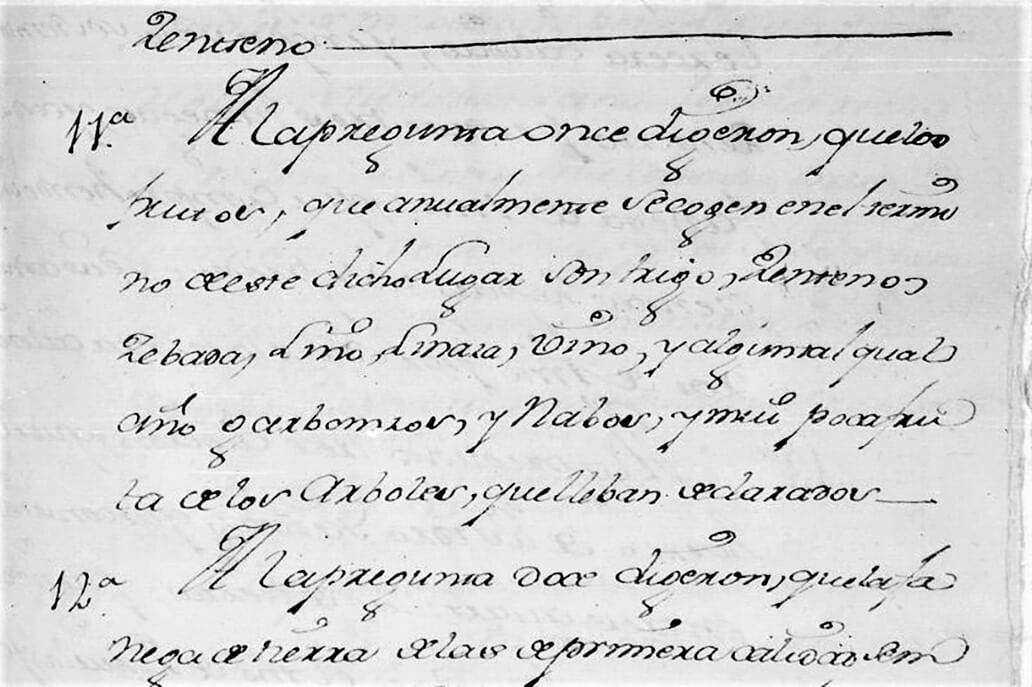 Zenteno
11ª A la pregunta once digeron, que los
frutos, que anualmente se cogen en el termi
no de este dicho Lugar son trigo, Zenteno,
Zebada, Lino, Linaza, Vino, y algun tal qual
año garbanzos, y Nabos, y mui poca fru
ta de los Arboles, que lleban declarados
12ª A la pregunta doce digeron, que la fa
nega de tierra de las de primera calidad sem